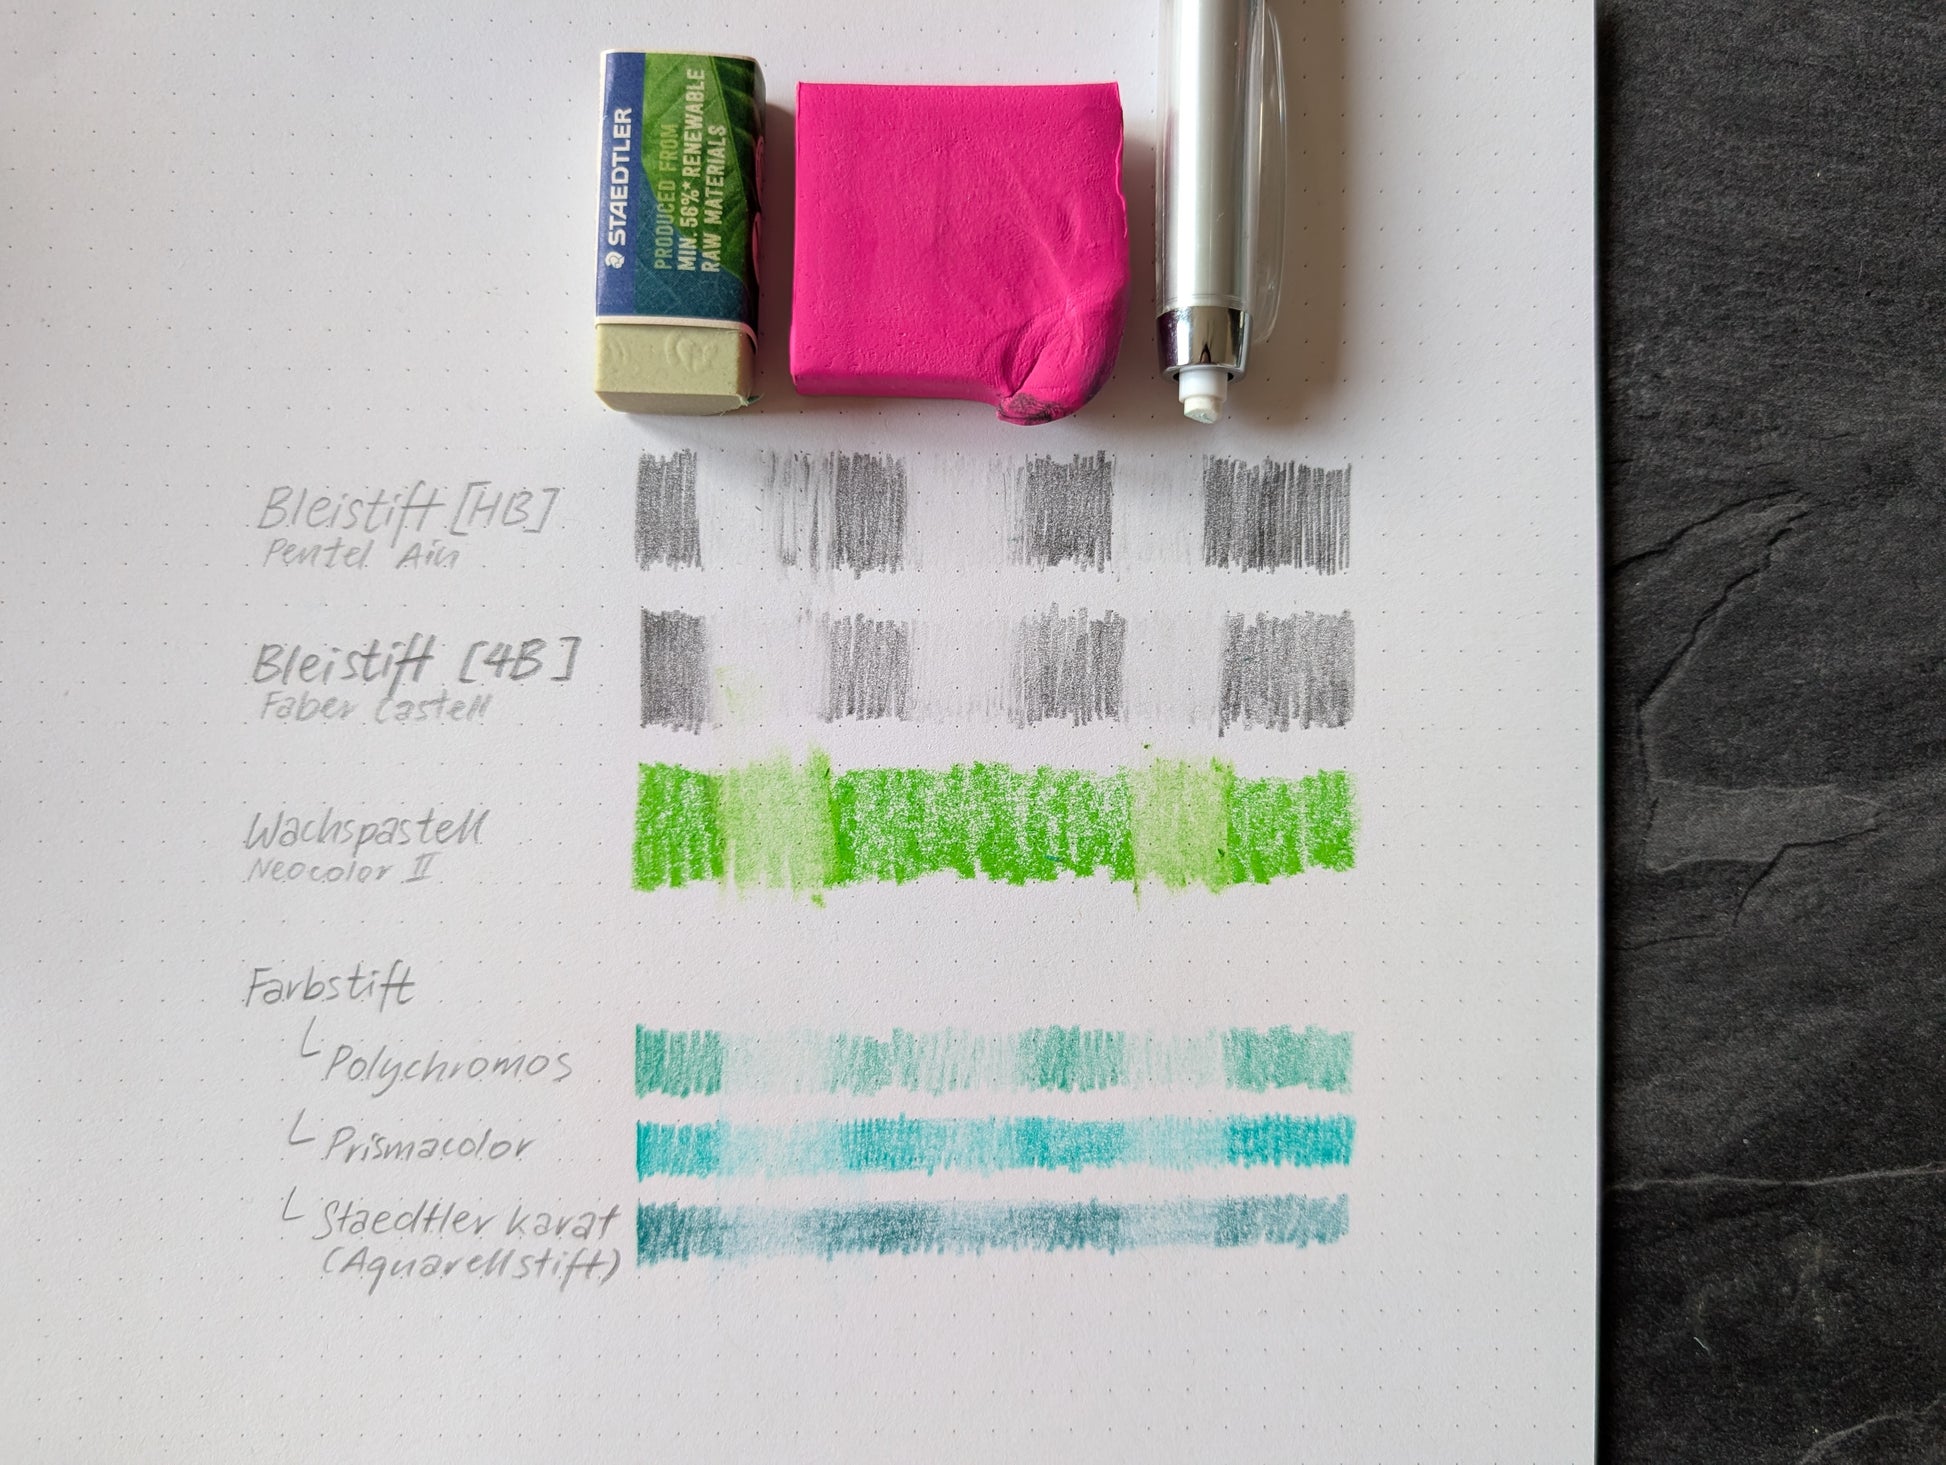 STAEDTLER
PRODUCED FROM
MIN. 56%* RENEWABLE
RAW MATERIALS
Bleistift [HB]
Pentel Ain
Bleistift [4B]
Faber Castell
Wachspastell
Neocolor II
Farbstift
Polychromos
Prismacolor
Staedtler karat
(Aquarellstift)